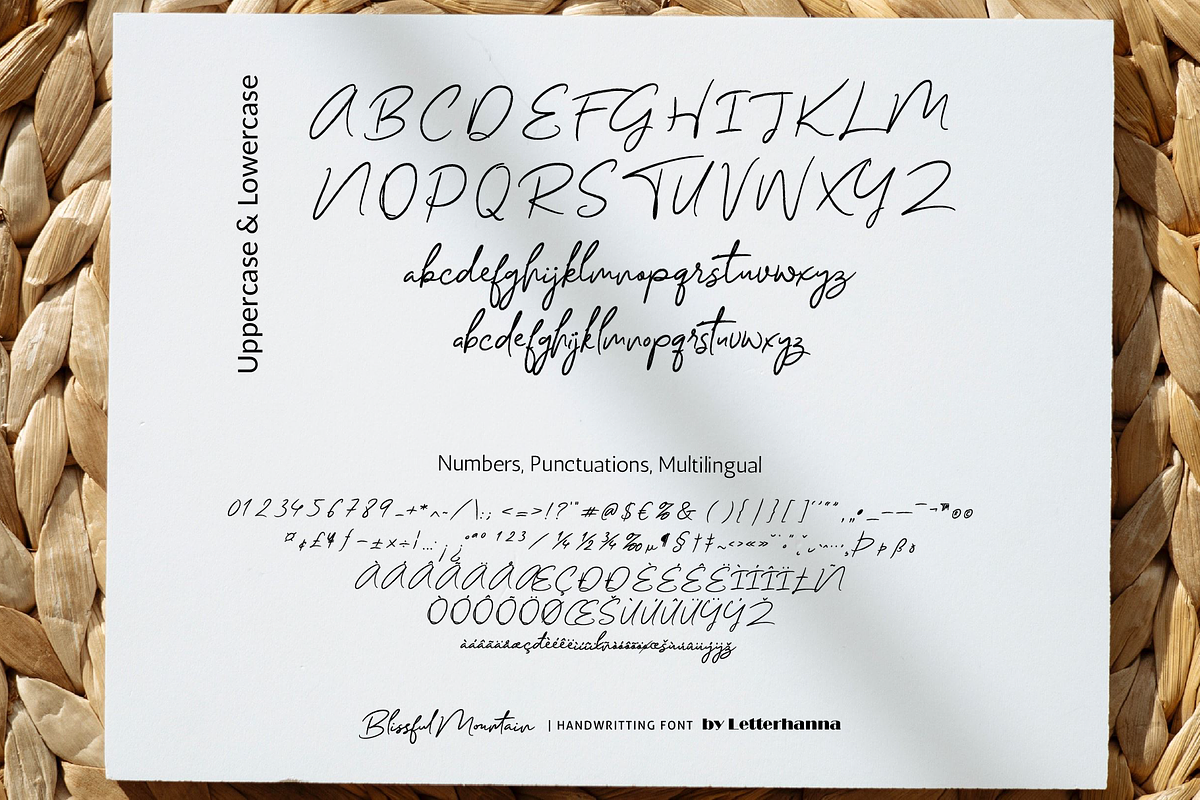 Uppercase & Lowercase
ABCDEFGHIJKLM
NOPQRSTUVWXYZ
abcdefghijklmnopqrstuvwxyz
abcdefghijklmnopqrstuvwxyz
Numbers, Punctuations, Multilingual
0123456789_+*^~-/\:;<=>!?'"#@$€%&(){|}[]''"",„•_——¯¬™®©
¤¢£¥ƒ−±×÷¦…¡¿ºªº¹²³/¼½¾‰µ¶§†‡~‹›«»
ÀÁÂÃÄÅÆÇÐĐÈÉÊËÌÍÎÏŁÑ
ÒÓÔÕÖØŒŠÙÚÛÜŸÝŽ
Blissful Mountain | HANDWRITTING FONT by Letterhanna